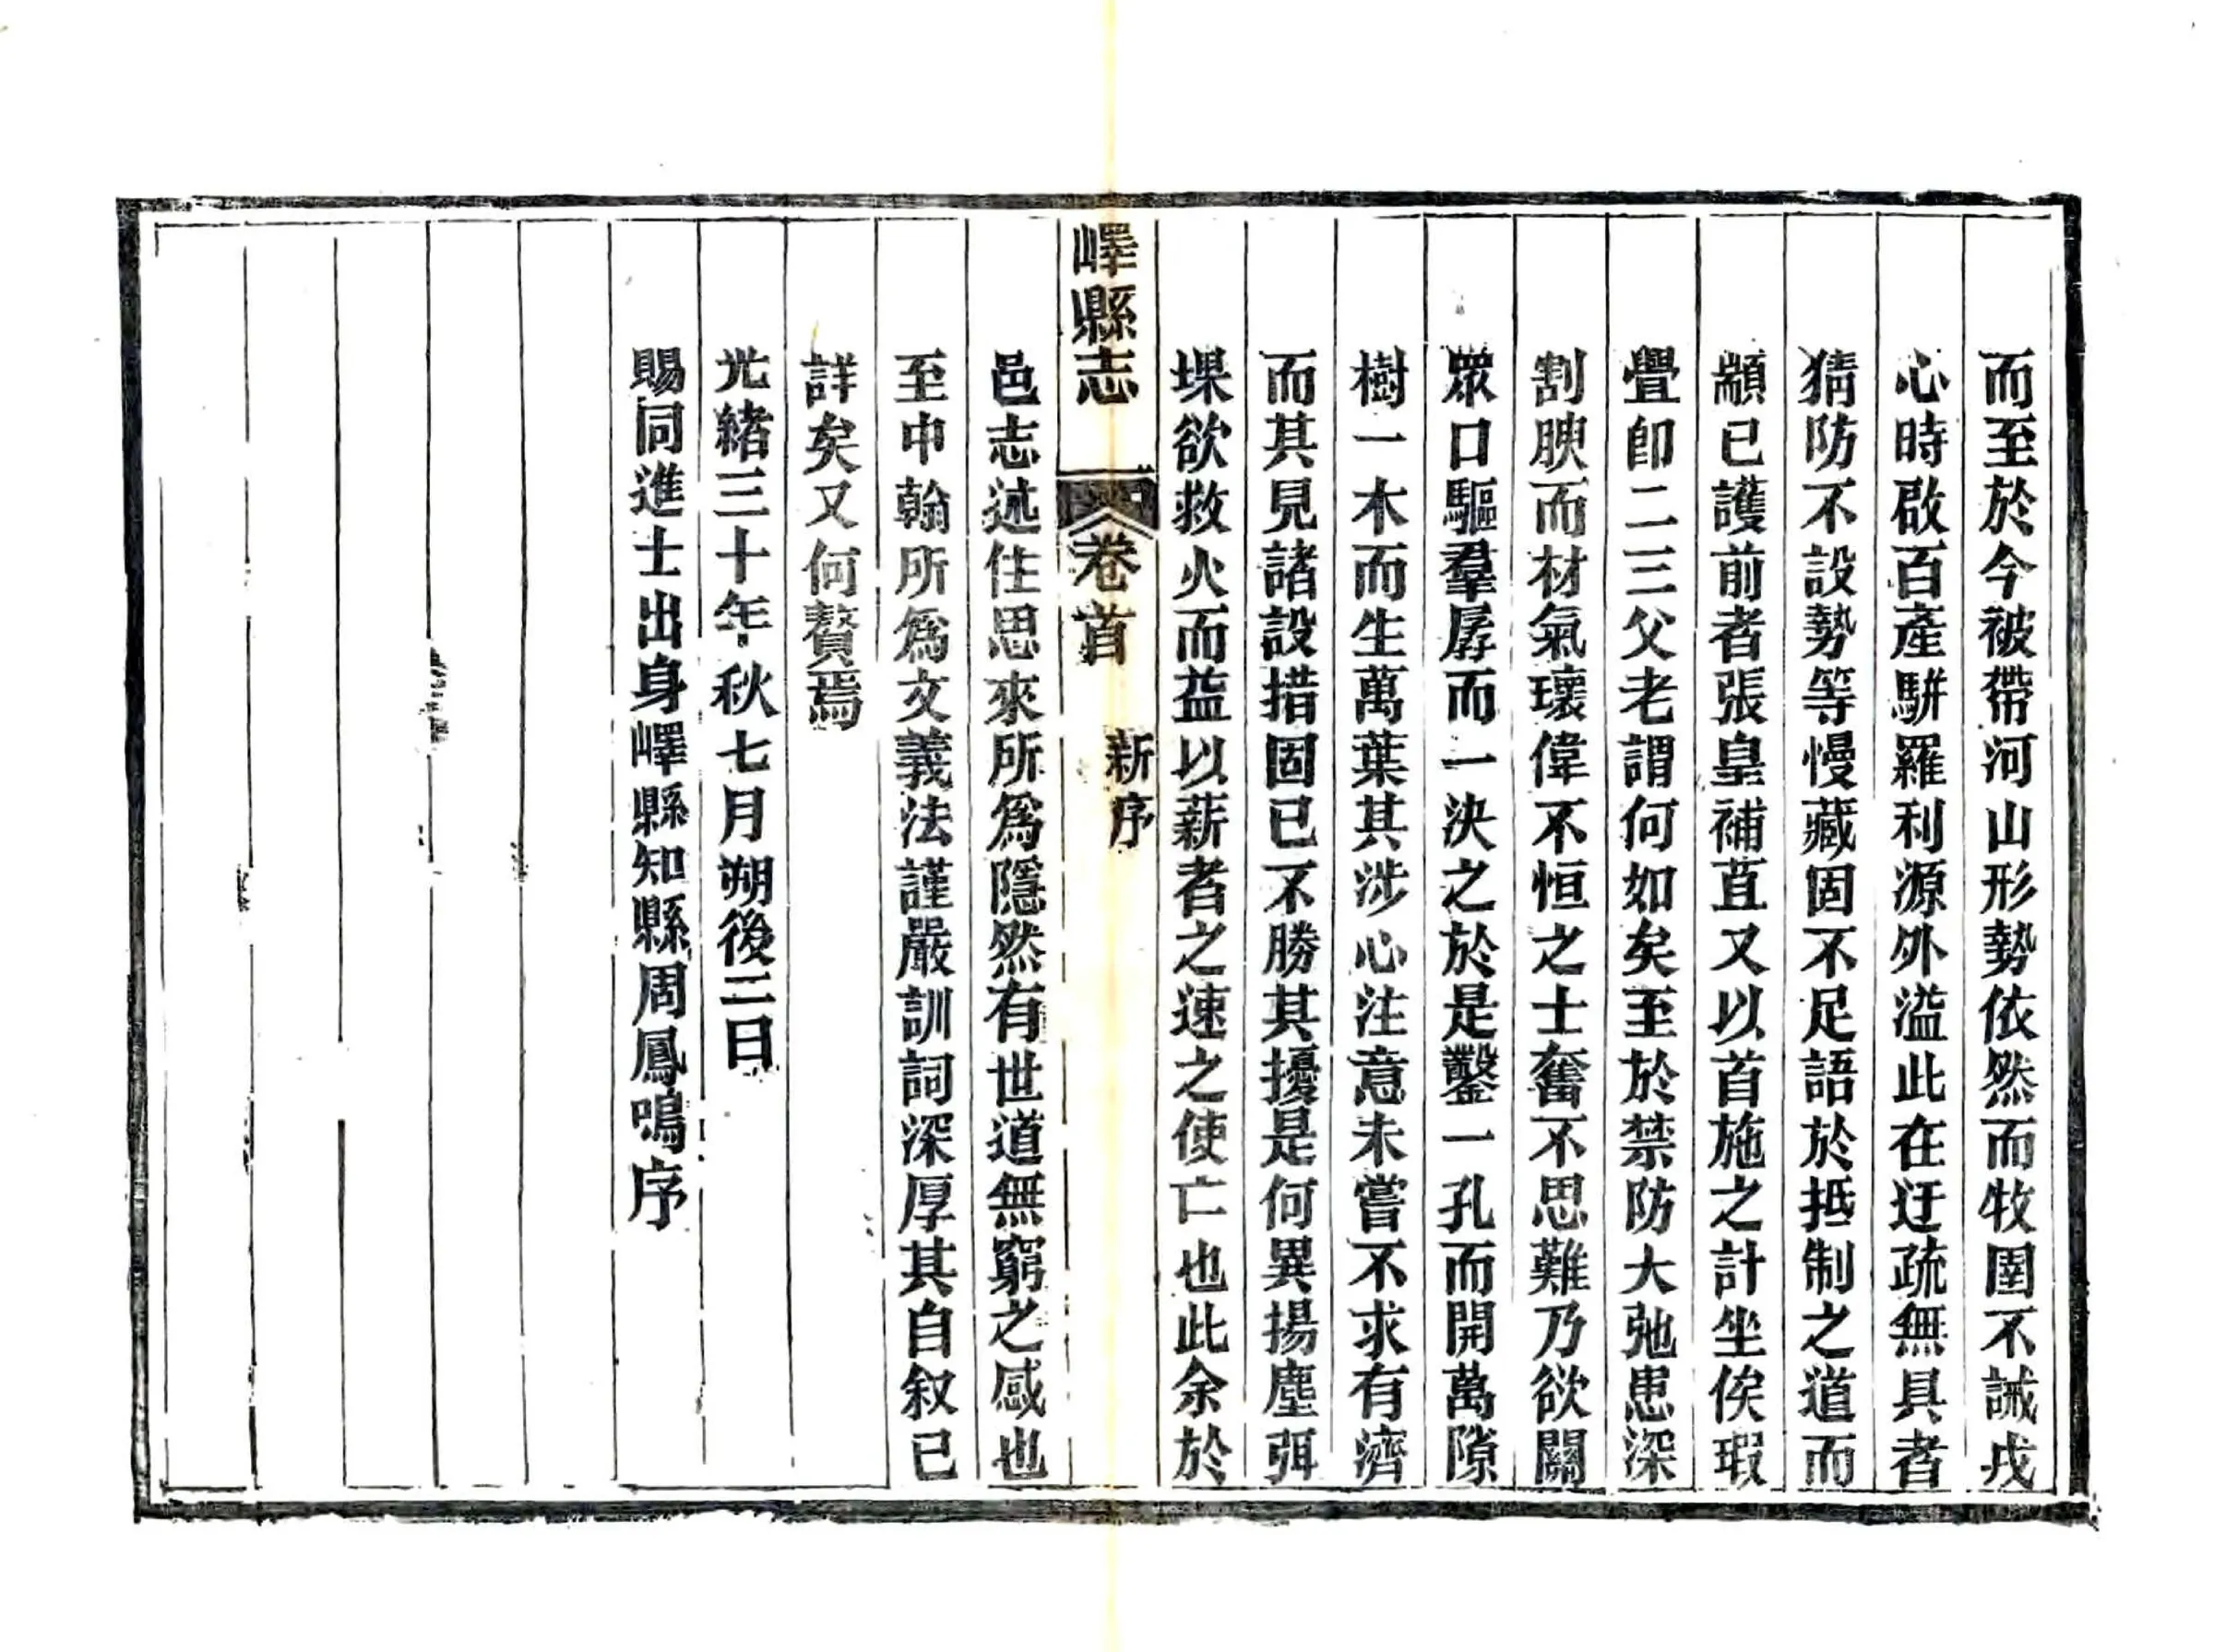 而至於今被帶河山形勢依然而牧圉不誡戎
心時啟百產駢羅利源外溢此在迂疏無具者
猜防不設勢等慢藏固不足語於抵制之道而
顓已護前者張皇補苴又以首施之計坐俟瑕
舋卽二三父老謂何如矣至於禁防大弛患深
割腴而材氣瓌偉不恒之士奮不思難乃欲關
眾口驅羣孱而一決之於是鑿一孔而開萬隙
樹一木而生萬葉其涉心注意未嘗不求有濟
而其見諸設措固已不勝其擾是何異揚塵弭
堁欲救火而益以薪者之速之使亡也此余於
嶧縣志 卷首 新序
邑志述住思來所爲隱然有世道無窮之感也
至中翰所爲文義法謹嚴訓詞深厚其自叙已
詳矣又何贅焉
光緒三十年秋七月朔後二日
賜同進士出身嶧縣知縣周鳳鳴序